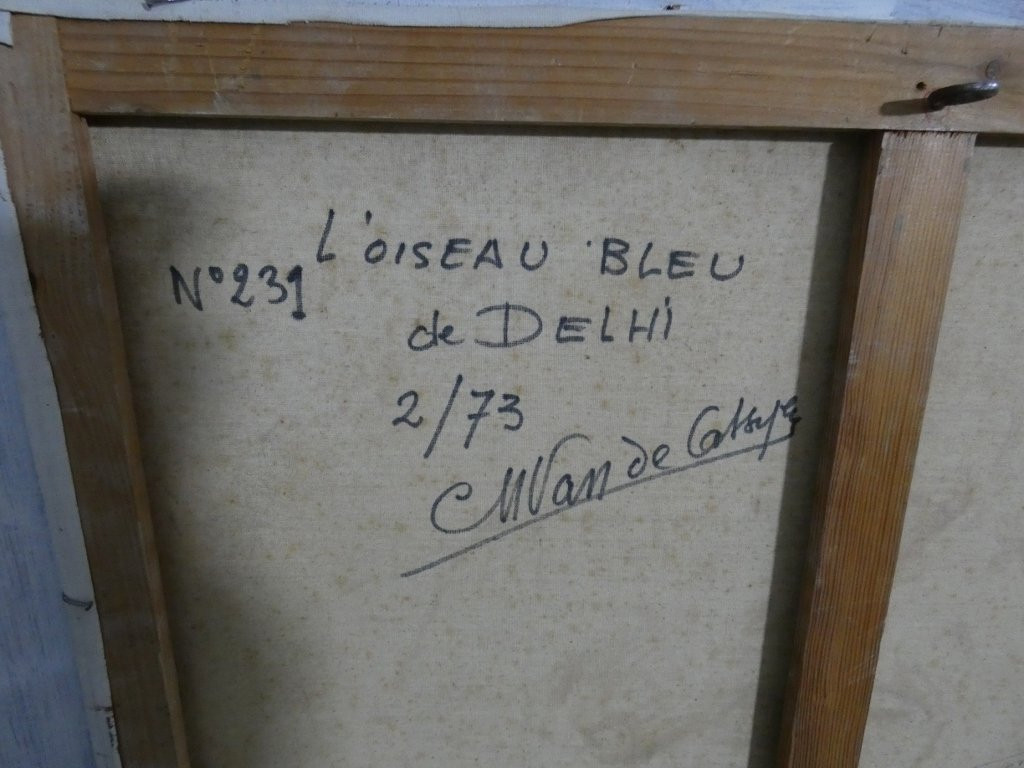 L'OISEAU BLEU
N° 231
de DELHI
2/73
Van de